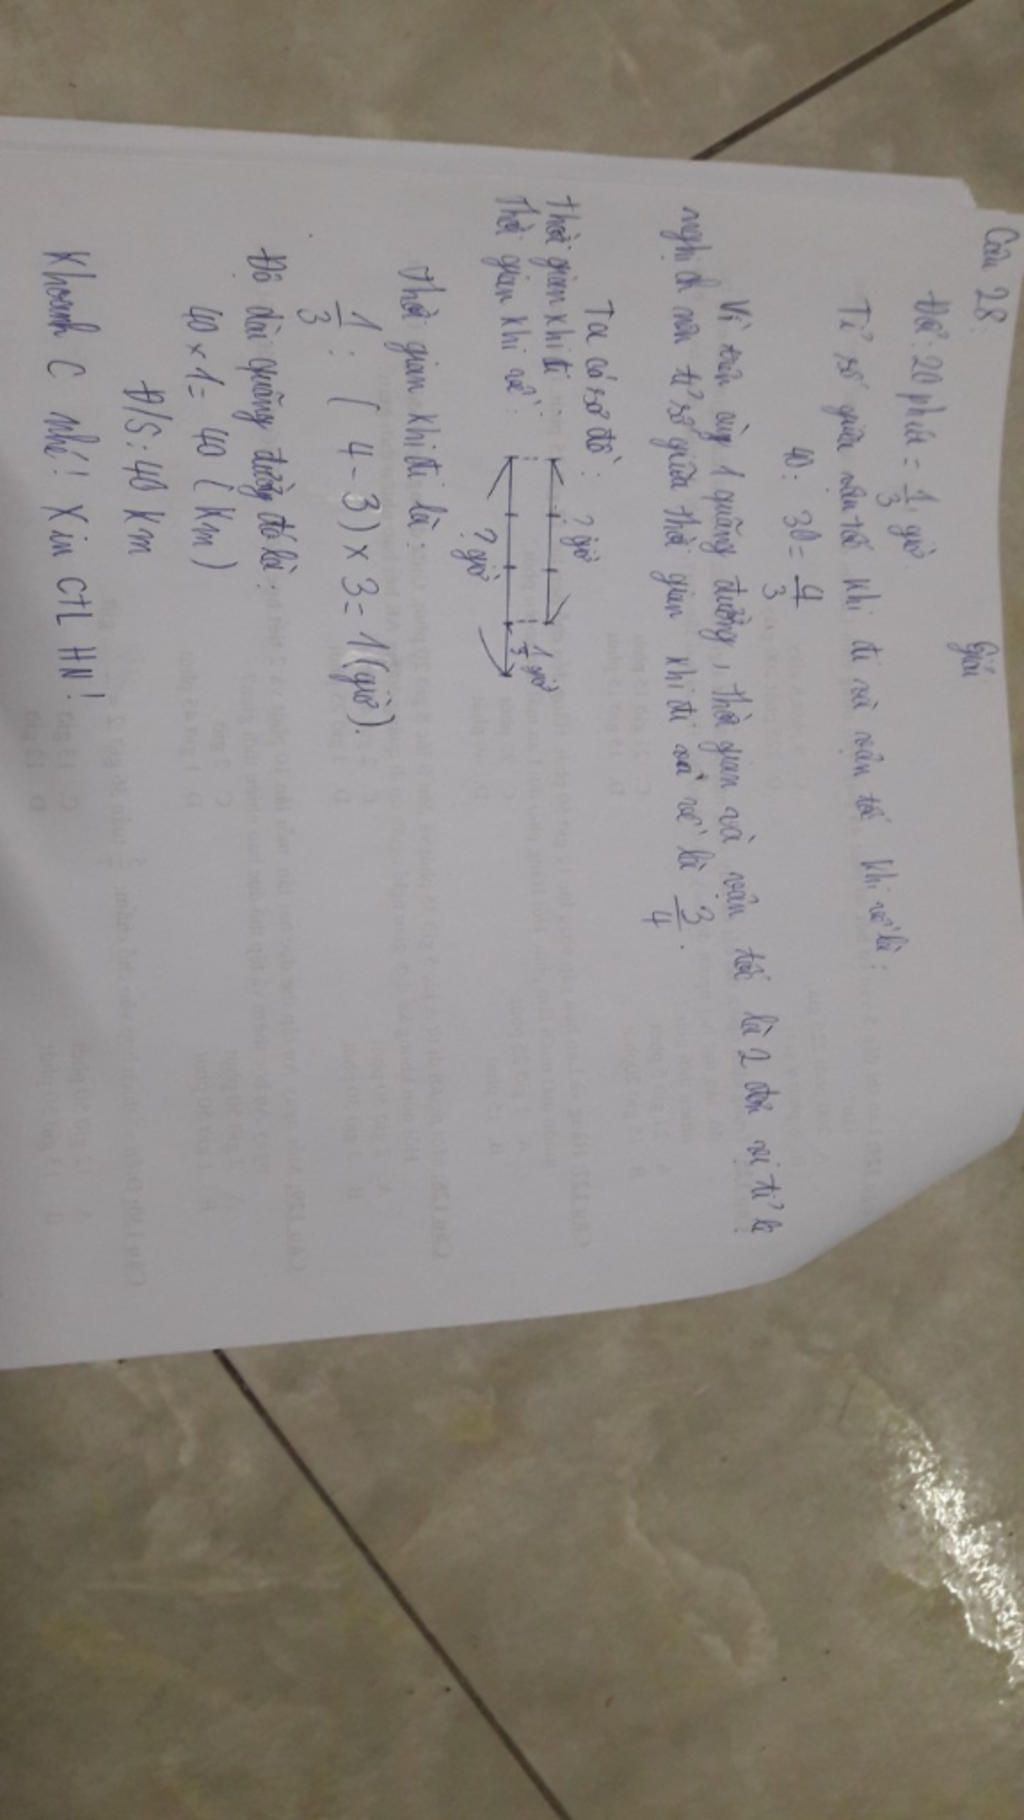 Câu 28:
Giải
Đổi: 20 phút = 1/3 giờ.
Tỉ số giữa vân tốc khi đi và vận tốc khi về là:
40 : 30 = 4/3
Vì trên cùng 1 quãng đường, thời gian và vân tốc là 2 đơn vị tỉ lệ
nghịch nên tỉ số giữa thời gian khi đi và về là 3/4.
Ta có sơ đồ:
? giờ
Thời gian khi đi
1/3 giờ
Thời gian khi về:
? giờ
Thời gian khi đi là
1/3 : ( 4 - 3 ) x 3 = 1 (giờ).
Độ dài quãng đường đó là:
40 x 1 = 40 ( Km )
Đ/S: 40 Km
Khoanh C nhé! Xin CTL HN!